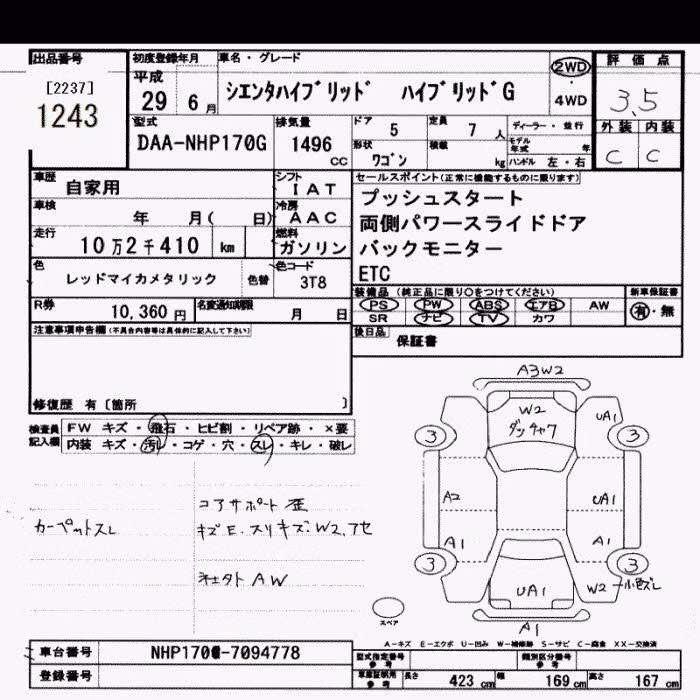 出品番号 初度登録年月 車名・グレード 評価点
[2237] 平成 2WD
1243 29 6月 シエンタハイブリッド ハイブリッドG ・ 3.5
4WD
型式 排気量 ドア 5 定員 7人 ディーラー・並行 外装 内装
DAA-NHP170G 1496 cc 形状 ワゴン 積載 kg モデル年式 年 C C
ハンドル 左・右
車歴 自家用 シフト IAT セールスポイント(正常に機能するものに限ります)
車検 年 月( 日) 冷房 AAC プッシュスタート
走行 10万2千410 km 燃料 ガソリン 両側パワースライドドア
バックモニター
色 レッドマイカメタリック 色替 色コード 3T8 ETC
R券 10,360円 名変通知期限 月 日 装備品(純正品に限り○をつけてください) 新車保証書
PS PW ABS エアB AW 有・無
SR ナビ TV カワ
注意事項申告欄(不具合内容等は具体的に記入して下さい) 後日品 保証書
修復歴 有[箇所 ]
検査員記入欄 FW キズ・飛石・ヒビ割・リペア跡・×要
内装 キズ・汚レ・コゲ・穴・スレ・キレ・破レ
A3W2
W2 UA1
3 3
A2 UA1
コアサポート歪
カーペットスレ キズE.スリキズ.W2.アセ
A1 A1
3 3
AW
UA1 W2
スペア
A1
A-キズ E-エクボ U-凹み W-補修跡 S-サビ C-腐食 XX-交換済
車台番号 NHP170-7094778 型式指定番号 参考 類別区分番号 参考
登録番号 車庫証明用 参考 長さ 423cm 幅 169cm 高さ 167cm